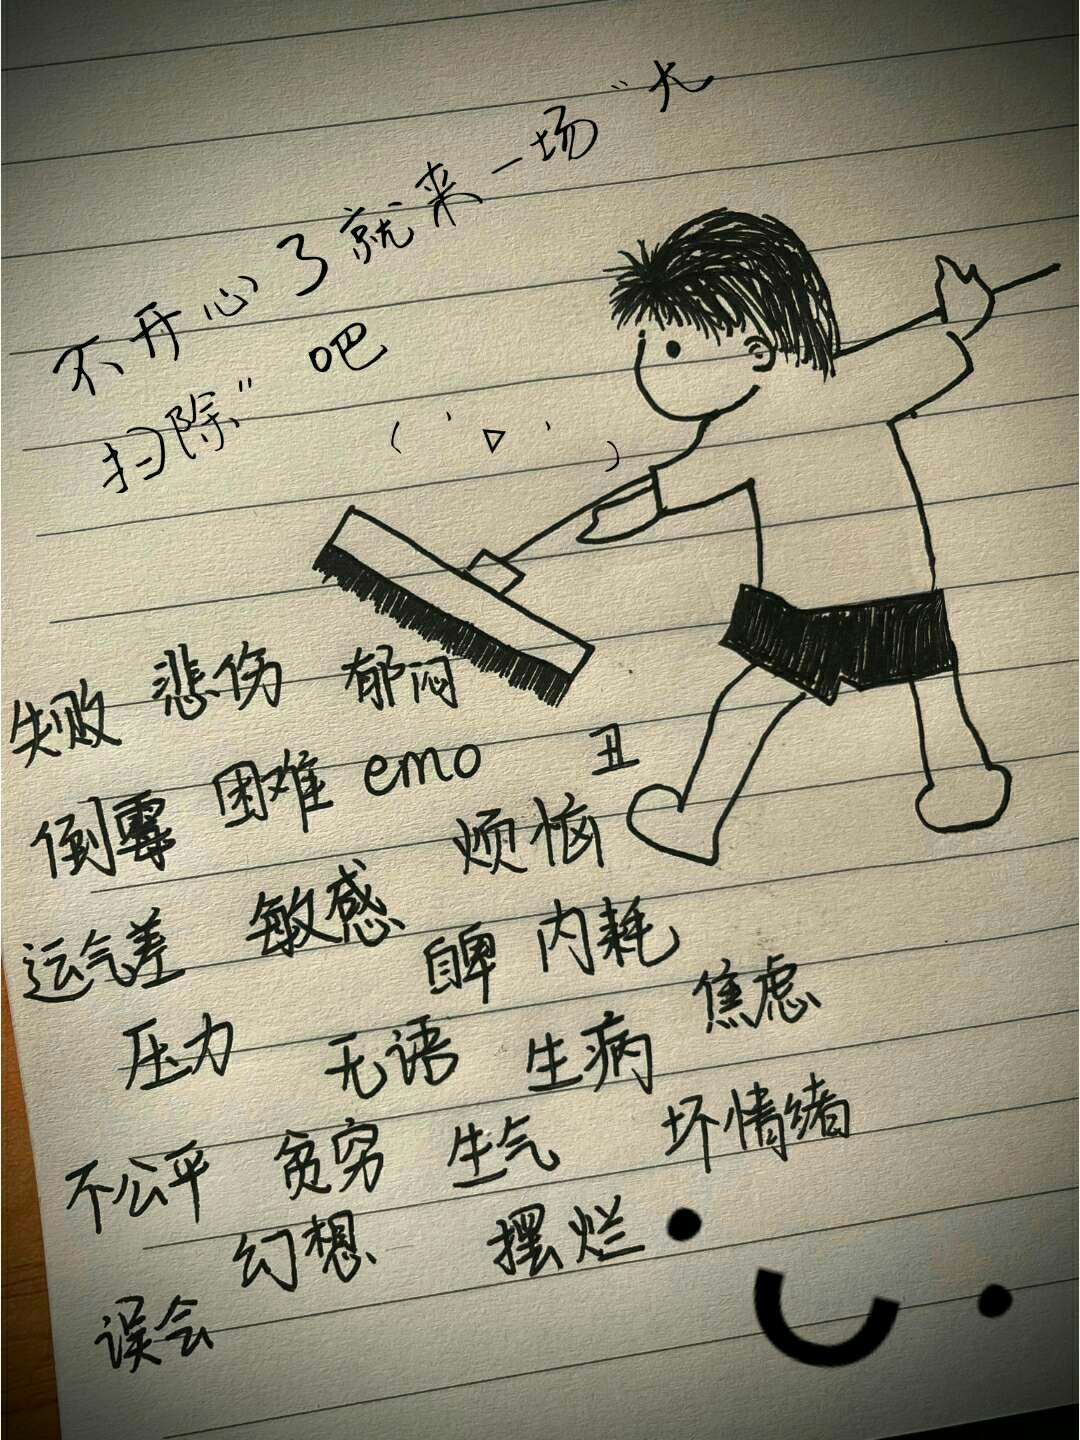 不开心了就来一场“大
扫除”吧
( ' ▽ ' )
失败 悲伤 郁闷
倒霉 困难 emo 丑
运气差 敏感 烦恼
自卑 内耗
压力 无语 生病 焦虑
不公平 贫穷 生气 坏情绪
幻想 摆烂
误会